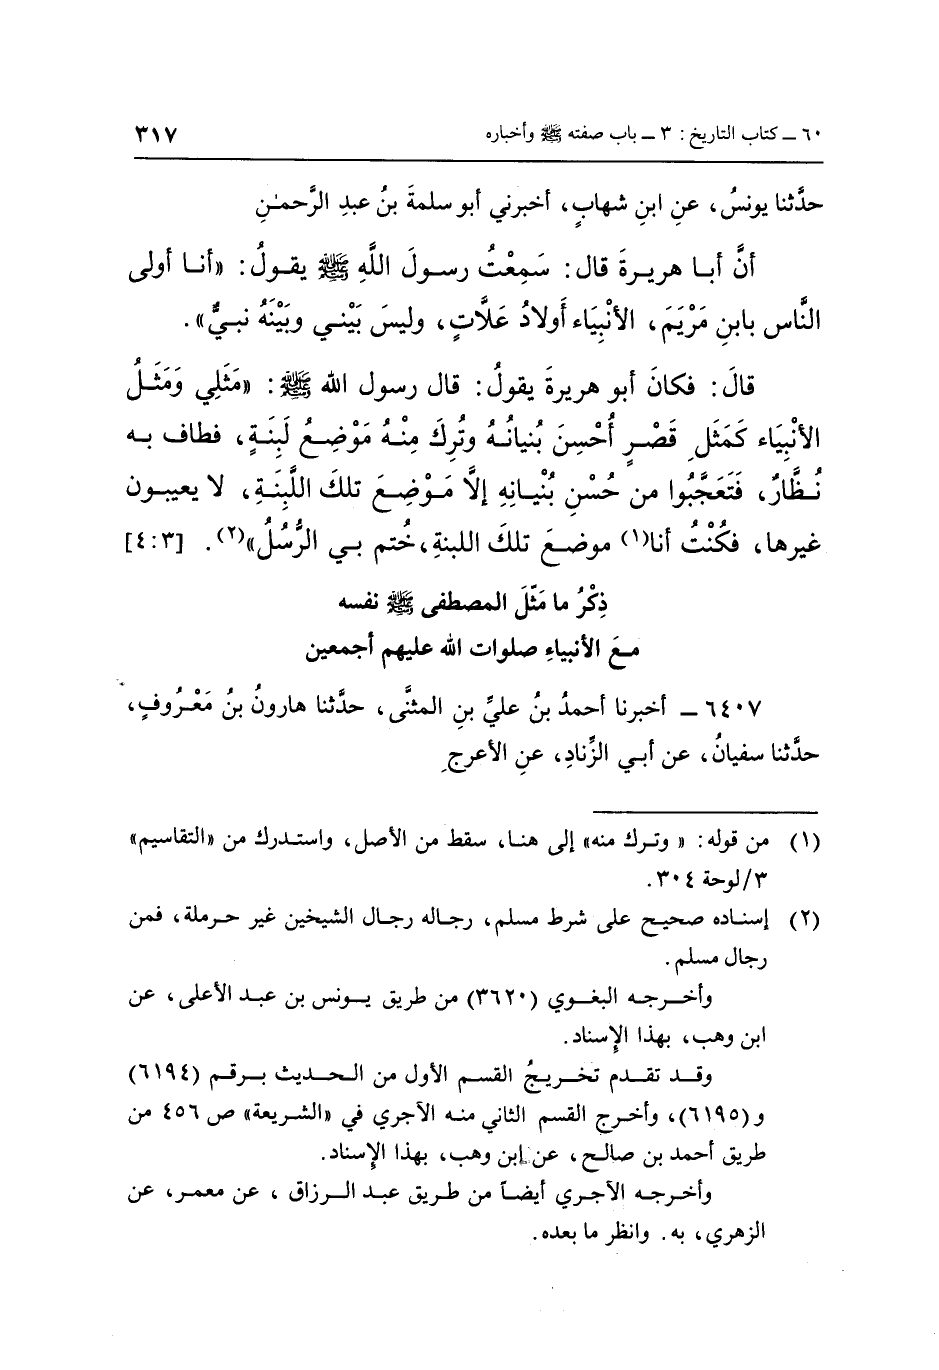 ٦٠ ــ كتاب التاريخ: ٣ ــ باب صفته ﷺ وأخباره ٣١٧
حدَّثنا يونسُ، عنِ ابنِ شهابٍ، أخبرني أبو سلمةَ بنُ عبدِ الرَّحمـٰنِ
أنَّ أبـا هريـرةَ قال: سَمِعْتُ رسـولَ اللَّهِ ﷺ يقـولُ: «أنـا أولى
النَّاس بابنِ مَرْيَمَ، الأنْبِيَاء أولادُ عَلَّاتٍ، وليسَ بَيْنـي وبَيْنَهُ نبـيٌّ».
قالَ: فكانَ أبو هريرةَ يقولُ: قال رسول الله ﷺ: «مَثَلِي وَمَثَـلُ
الأنْبِيَاء كَمَثَلِ قَصْـرٍ أُحْسِنَ بُنيانُـهُ وتُرِكَ مِنْـهُ مَوْضِـعُ لَبِنَـةٍ، فطاف بـه
نُـظَّارٌ، فَتَعَجَّبُوا من حُسْنِ بُنْيـانِهِ إلَّا مَـوْضِـعَ تلكَ اللَّبِنَـةِ، لا يعيبـون
غيرها، فكُنْتُ أنا(١) موضـعَ تلكَ اللبنةِ، خُتم بـي الرُّسُلُ»(٢). [٤:٣]
ذِكْرُ ما مَثّلَ المصطفى ﷺ نفسه
مـعَ الأنبياءِ صلوات الله عليهم أجمعين
٦٤٠٧ ــ أخبرنا أحمدُ بنُ عليِّ بنِ المثنَّى، حدَّثنا هارونُ بنُ مَعْـروفٍ،
حدَّثنا سفيانُ، عن أبـي الزِّنادِ، عنِ الأعرجِ
(١) من قوله: «وتـرك منه» إلى هنـا، سقط من الأصل، واستـدرك من «التقاسيم»
٣/لوحة ٣٠٤.
(٢) إسنـاده صحيـح على شرط مسلم، رجـاله رجـال الشيخين غير حـرملة، فمن
رجال مسلم.
وأخــرجـه البغـوي (٣٦٢٠) من طريق يـونس بن عبـد الأعلى، عن
ابن وهب، بهذا الإسناد.
وقــد تقـدم تخــريـجُ القسـم الأول من الـحـديث بـرقم (٦١٩٤)
و(٦١٩٥)، وأخـرج القسم الثاني منـه الآجري في «الشريعة» ص ٤٥٦ من
طريق أحمد بن صالـح، عن ابن وهب، بهذا الإسناد.
وأخـرجـه الآجري أيضـاً من طـريق عبـد الـرزاق، عن معمـر، عن
الزهري، به. وانظر ما بعده.